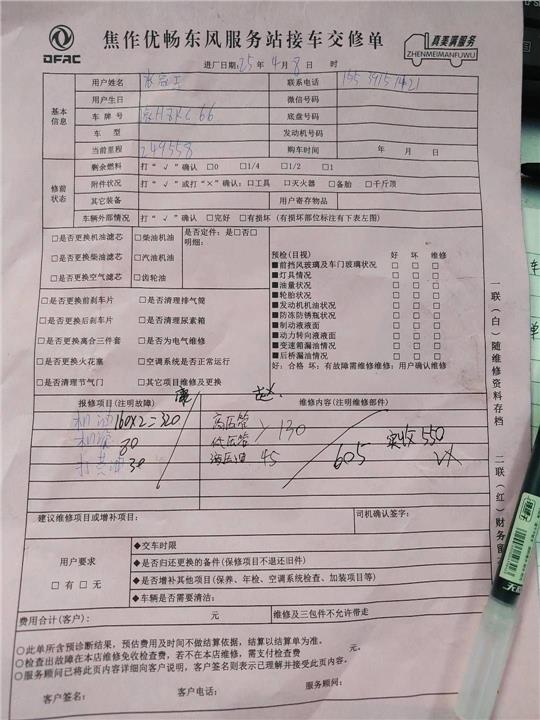 DFAC
焦作优畅东风服务站接车交修单
真美满服务
ZHENMEIMANFUWU
进厂日期：25年4月8日 时
基本信息
用户姓名 联系电话
用户生日 微信号码
车牌号 66 底盘号码
车型 发动机号码
当前里程 249558 购车时间 年 月 日
修前状态
剩余燃料 打“√”确认 □0 □1/4 □1/2 □1
附件状况 打“√”或打“×”确认：□工具 □灭火器 □备胎 □千斤顶
其它装备 用户寄存物品
车辆外部情况 打“√”确认 □完好 □有损坏（有损坏部位标注有下表左图）
□是否更换机油滤芯 □柴油机油 是否定件：是□否□
明细：
□是否更换柴油滤芯 □汽油机油
□是否更换空气滤芯 □齿轮油
□是否更换前刹车片 □是否清理排气筒
□是否更换后刹车片 □是否清理尿素箱
□是否更换离合三件套 □是否为电气维修
□是否更换火花塞 □空调系统是否正常运行
□是否清理节气门 □其它项目维修及更换
预检（目视） 好 坏 维修
■前挡风玻璃及车门玻璃状况 □ □ □
■灯具情况 □ □ □
■油量状况 □ □ □
■轮胎状况 □ □ □
■发动机机油状况 □ □ □
■防冻防锈瓶状况 □ □ □
■制动液液面 □ □ □
■动力转向液液面 □ □ □
■变速箱漏油情况 □ □ □
■后桥漏油情况 □ □ □
好：合格 坏：有故障需维修维修：用户确认维修
报修项目（注明故障） 维修内容（注明维修部件）
机油 160×2=320 高压管
机滤 80 低压管 130
打黄油 30 液压油 45 605 实收 550
建议维修项目或增补项目： 司机确认签字：
用户要求
□有 □无
◆交车时限
◆是否归还更换的备件（保修项目不退还旧件）
◆是否增补其他项目（保养、年检、空调系统检查、加装项目等）
◆车辆是否需要清洁：
费用合计（客户）： 元 维修及三包件不允许带走
○此单所含预诊断结果，预估费用及时间不做结算依据，结算以结算单为准。
○检查出故障在本店维修免收检查费，若不在本店维修，需支付检查费 元。
○服务顾问已将此页内容详细向客户说明，客户签名则表示已理解并接受此页内容。
客户签名： 客户电话： 服务顾问：
一联（白）随维修资料存档
二联（红）财务留